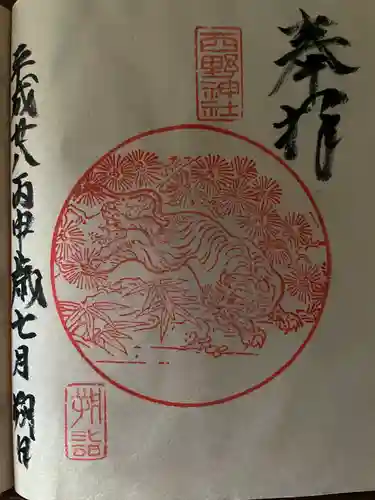 奉拝
西野神社
平成廿八丙申歳七月朔日
朔詣